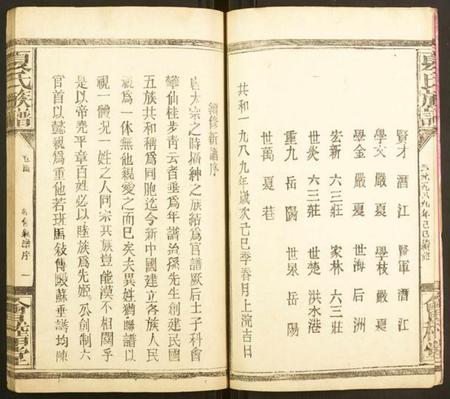 賢才 酒江 賢軍 酒江
學文 嚴夏 學枝 嚴夏
學金 嚴夏 世海 后洲
宏新 六三莊 家林 六三莊
世炎 六三莊 世楚 洪水港
重九 岳陽 世泉 岳陽
世萬 夏巷
共和一九八九年歲次己巳季春月上浣吉日
續修新譜序
唐太宗之時搢紳之族結為官譜厥后士子科會
攀仙桂步青云者垂為年譜治孫先生創建民國
五族共和稱為同胞迄今新中國建立各族人民
視為一体無他親愛之而已矣夫異姓猶聯譜以
視一體況一姓之人同宗共族豈能漠不相關乎
是以帝堯平章百姓必以睦族為先姬公創制六
官首以懿親為重他若班馬敘傳歐蘇垂譜均陳
袁氏族譜
卷首
續修新譜序 一
袁氏族譜
公元一九八九年己巳續修